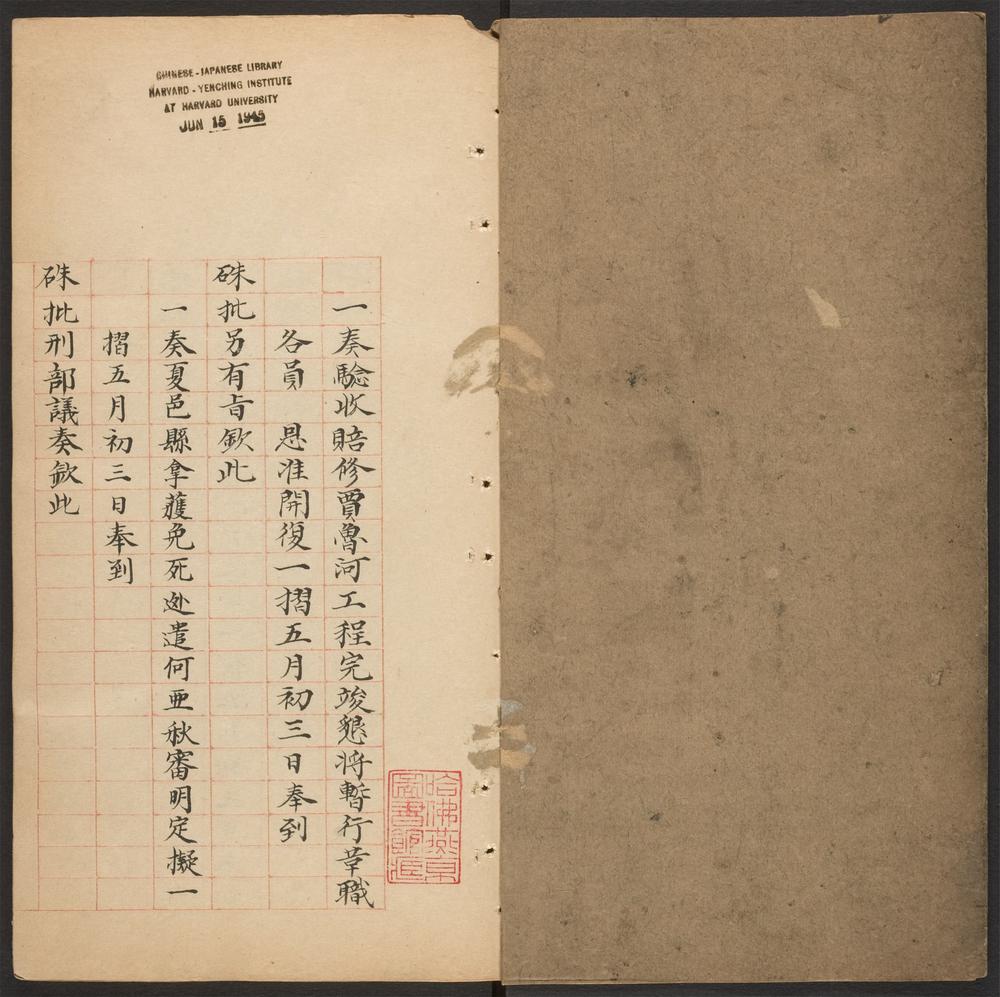 CHINESE-JAPANESE LIBRARY
HARVARD-YENCHING INSTITUTE
AT HARVARD UNIVERSITY
JUN 15 1945
一奏驗收賠修賈魯河工程完竣懇將暫行革職
各員　恩准開復一摺五月初三日奉到
硃批另有旨欽此
一奏夏邑縣拿獲免死逃遣何亞秋審明定擬一
摺五月初三日奉到
硃批刑部議奏欽此
哈佛燕京
圖書館藏